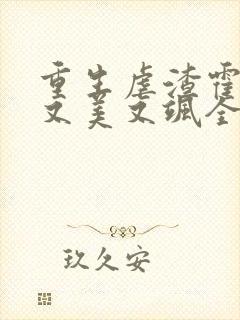 重生虐渣霍
又美又飒全
玖久安